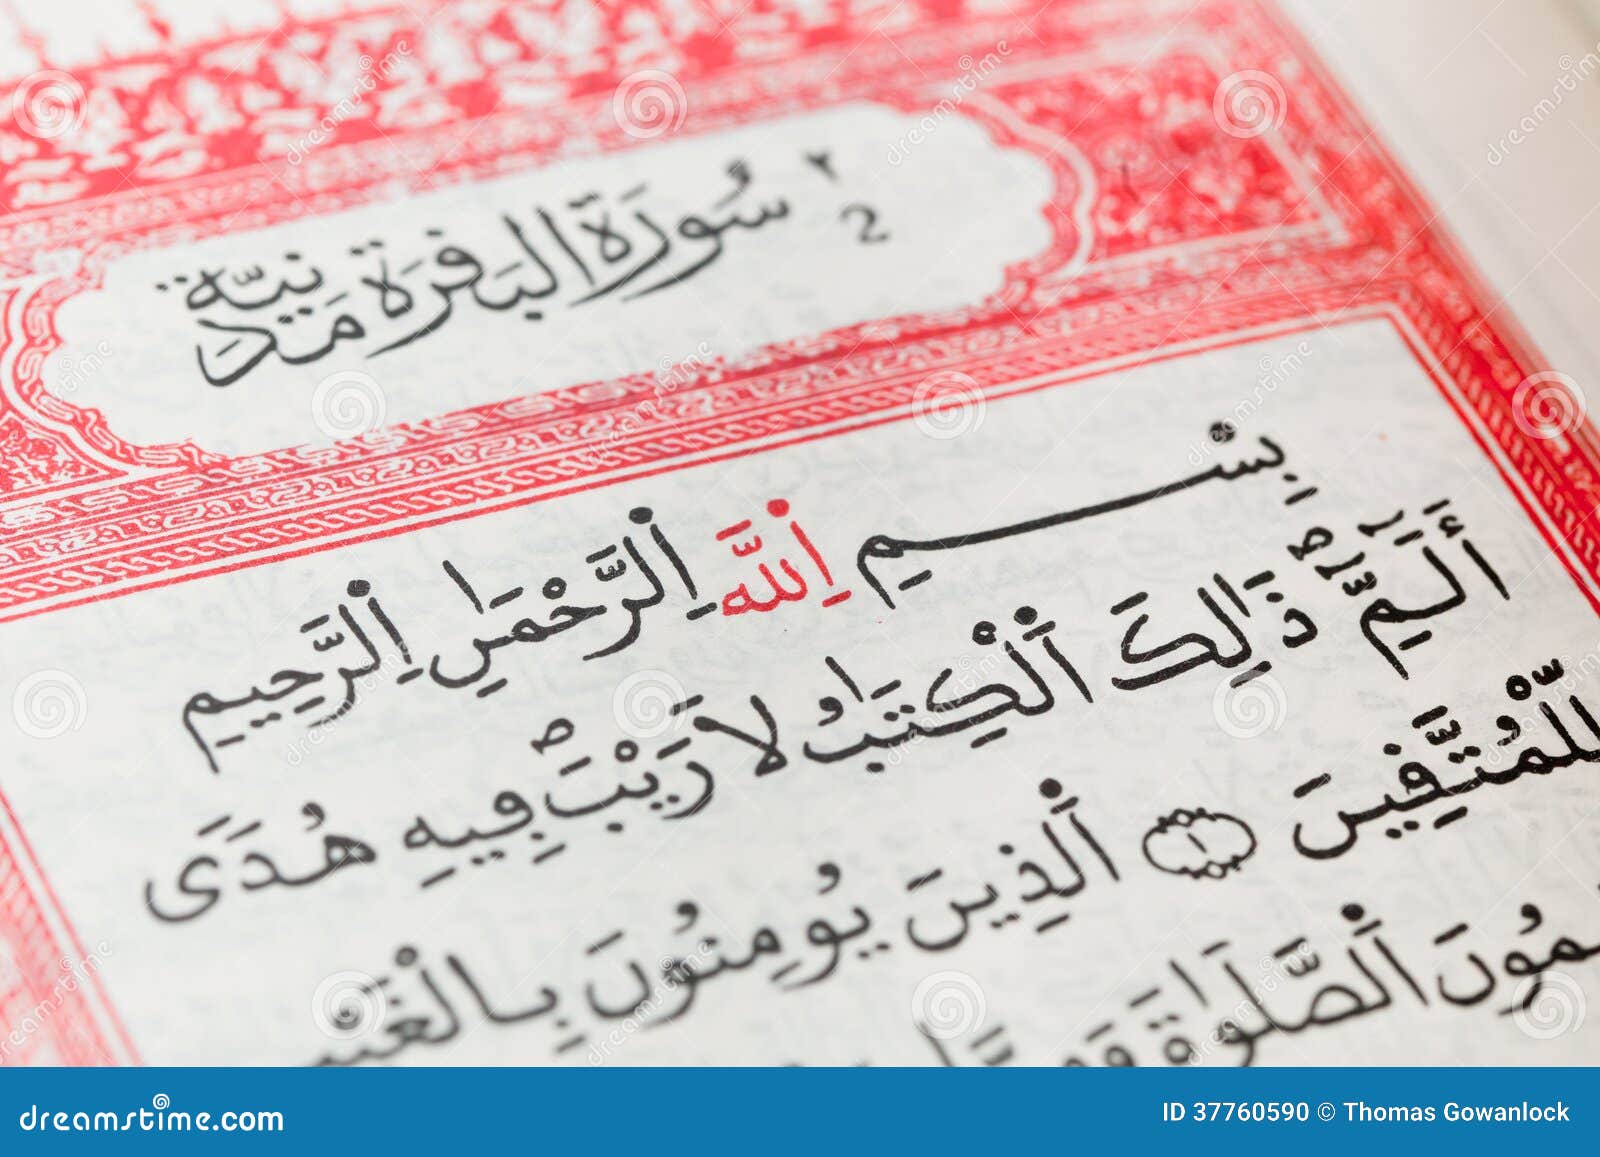 ٢
2
سُورَة البَقَرَة مَدَنِيّة
بِسْمِ اِ۬للَّهِ اِ۬لرَّحْمَٰنِ اِ۬لرَّحِيمِ
أَلَٓمِّٓ ذَٰلِكَ اَ۬لْكِتَٰبُ لَا رَيْبَ فِيهِ هُدًى
لِّلْمُتَّقِينَ ١ اَ۬لذِينَ يُومِنُونَ بِالْغَيْبِ
ـيمُونَ اَ۬لصَّلَوٰةَ
dreamstime.com
ID 37760590 © Thomas Gowanlock